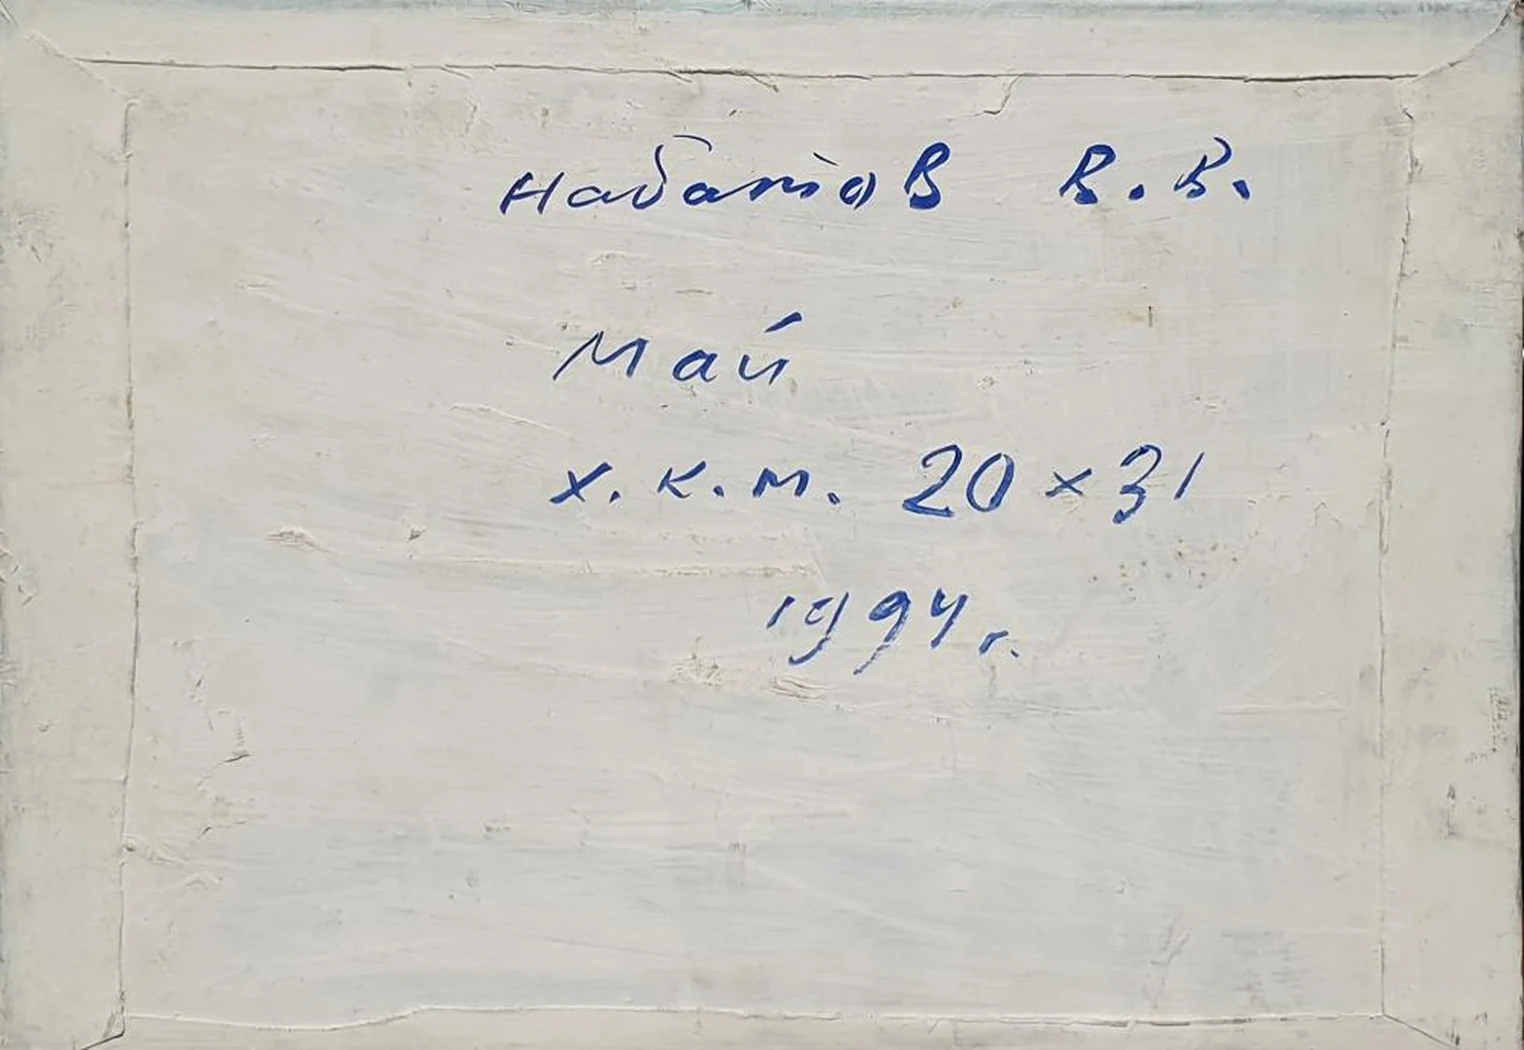 Набатов В.В.
Май
х.к.м. 20 × 31
1994 г.